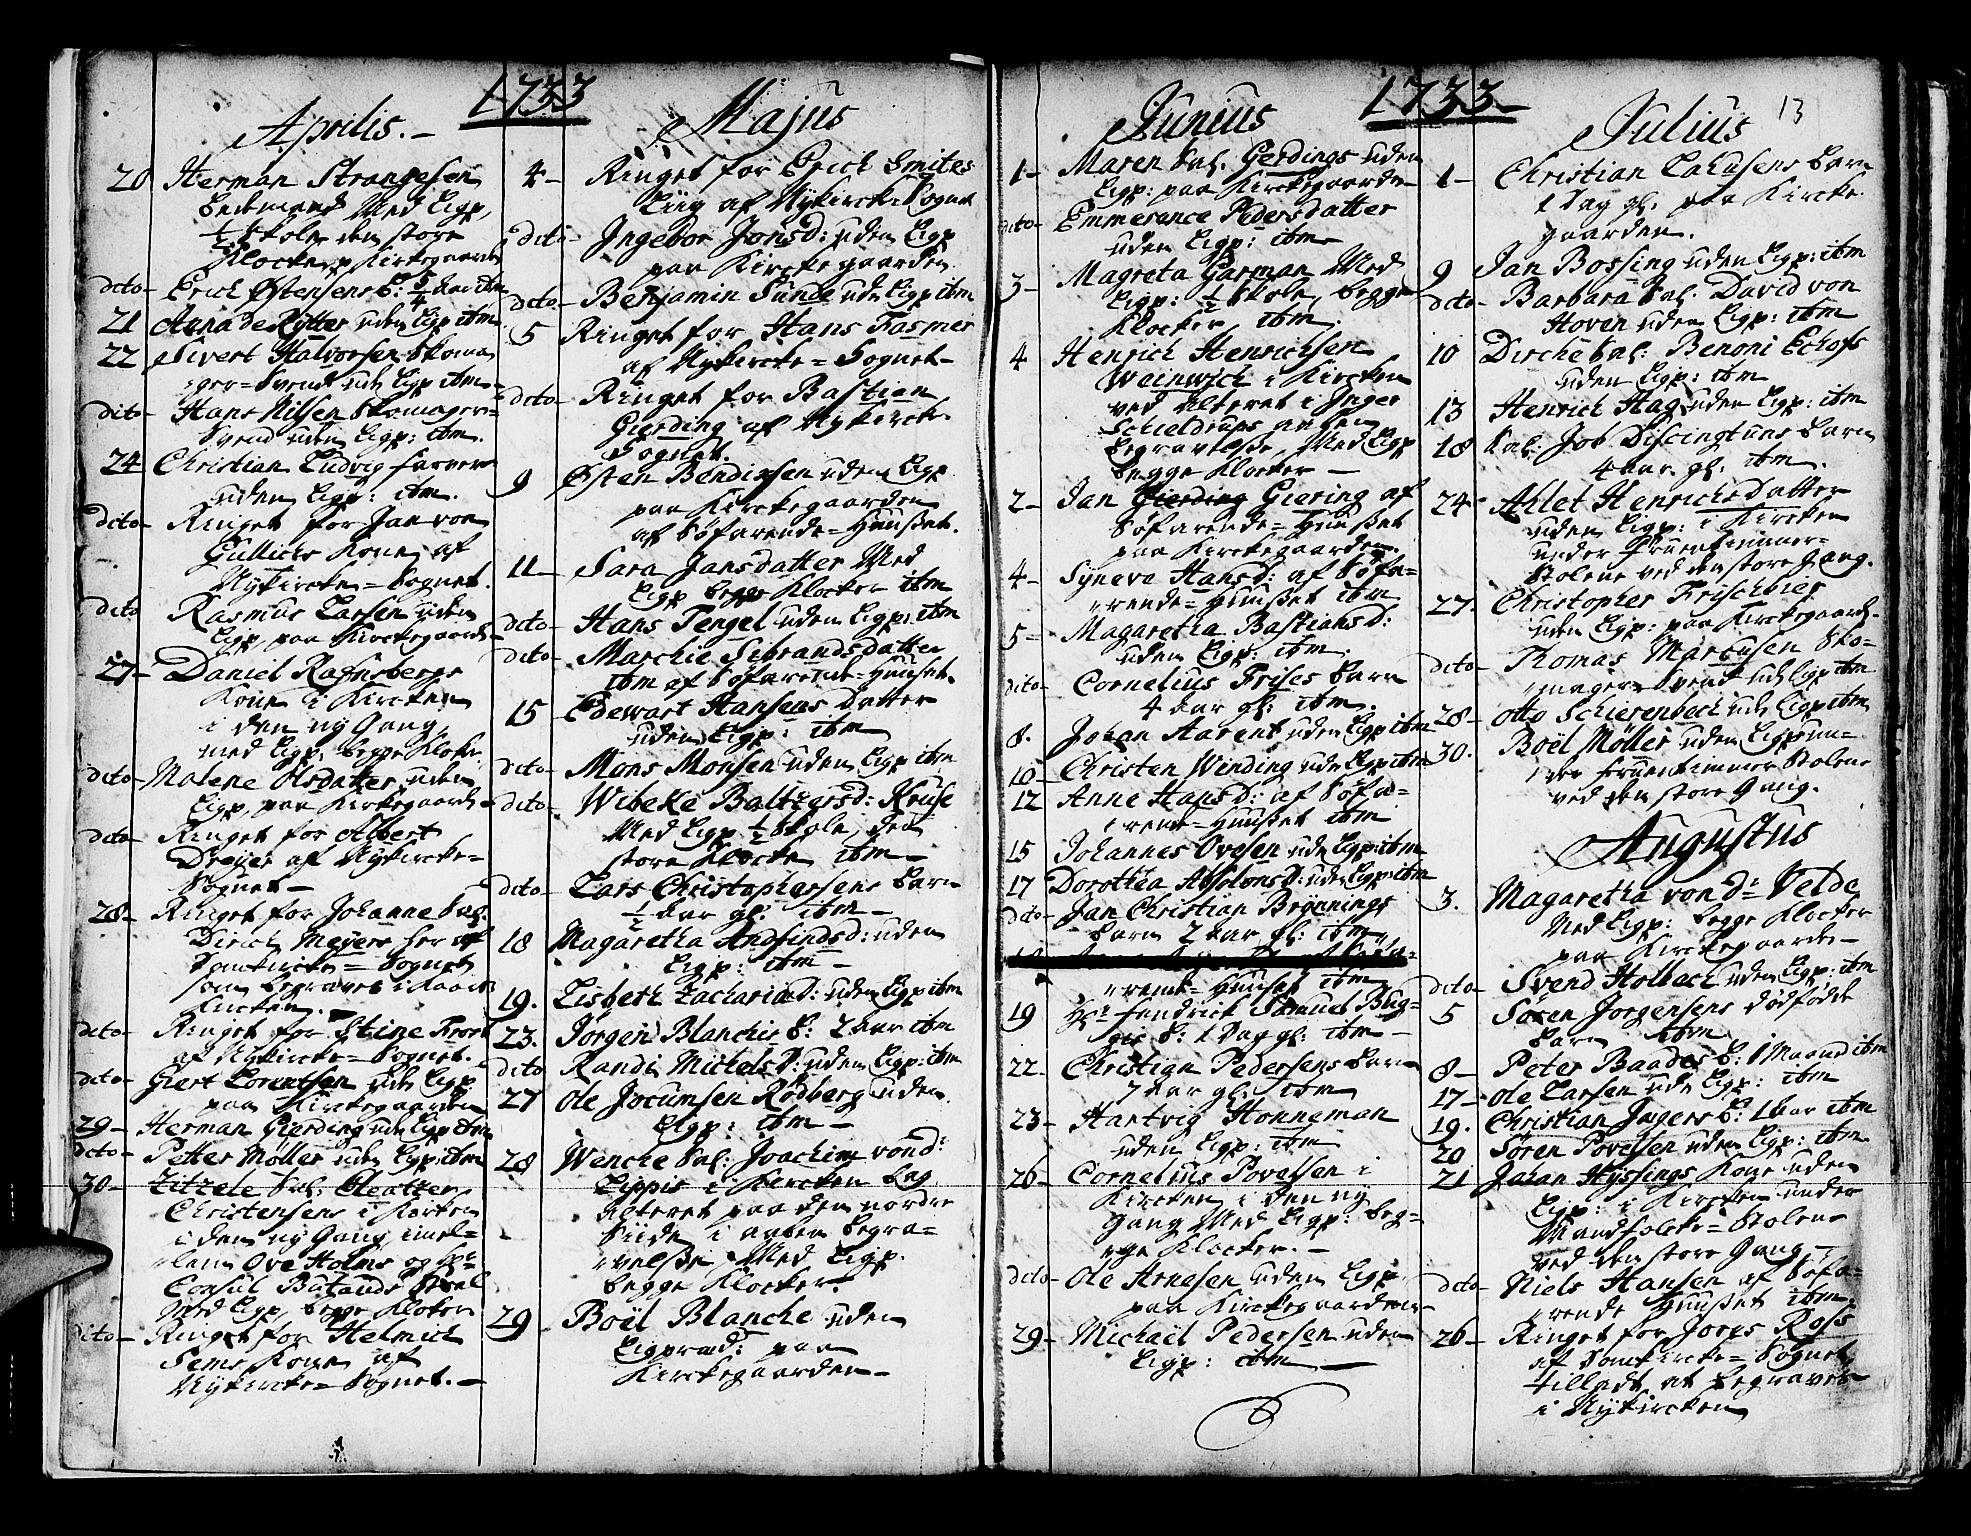 1733
Aprilis.
20 Herman Strangesen
bedemand Med Ligp,
1/2 Skole den store
Klocke, p Kirkegaarde
dito Erich Østensens b: 5/4 aar ibm
21 Anna de Rytter uden Ligp ibm
22 Sivert Halvorsen Skoma
ger-Svend ud Ligp ibm
dito Hans Nilsen Skomager-
Svend uden Ligp: ibm.
24 Christian Ludvig farver
uden Ligp: ibm.
dito Ringet for Jan von
Gullichs Kone af
Nykircke-Sognet.
dito Rasmus Larsen uden
Ligp, paa Kirckegaarde
27 Daniel Rafnsbergs
Kone i Kircken
i den ny Gang
med Ligp, begge Klocker
dito Malene Olsdatter uden
Ligp, paa Kirckegaarde
dito Ringet for Albert
Dreyer af Nykircke-
Sognet
28 Ringet for Johanne Sal.
Dirich Meyers her af
Domkircke-Sognet
som begraves i Kaars
Kircken.
dito Ringet for Stine Frost
af Nykircke-Sognet.
dito Giert Lorentsen uden Ligp
paa Kirckegaarden
29 Herman Gierding uden Ligp ibm
dito Petter Møller uden Ligp: ibm
30 Zitzele Sal:
Christensens i Kircken
i den ny Gang imel-
lem Ove Holms og Hr
Consul Butauds Stoel
Med Ligp, begge Klocker
dito Ringet for Helmich
Sems Kone af
Nykircke-Sognet.
Majus
4 Ringet for Erich Smites
Liig af Nykircke-Sognet
dito Ingebor Jonsd: uden Ligp
paa Kirckegaarden
dito Benjamin Sunde uden Ligp ibm
5 Ringet for Hans Fasmer
af Nykircke-Sognet
dito Ringet for Bastien
Gierding af Nykircke
Sognet.
9 Østen Bendixsen uden Ligp
paa Kirckegaarden
af Søfarende-Huuset.
11 Sara Jansdatter Med
Ligp begge Klocker ibm
dito Hans Tengel uden Ligp: ibm
dito Marchie Sibrandsdatter
ibm af Søfarende-Huuset.
15 Edewart Hansens Datter
uden Ligp: ibm
dito Mons Monsen uden Ligp ibm
dito Wibeke Baltzersd: Kruse
Med Ligp 1/2 Skole, den
store Klocke ibm
dito Lars Christophersens barn
1/2 aar gl. ibm
18 Magaretha Andfindsd: uden
Ligp: ibm
19. Lisbeth Zachariæd: uden Ligp ibm
23. Jørgen Blanchis b: 2 aar ibm
dito Randi Michelsd: uden Ligp: ibm
27 Ole Jocumsen Rødberg uden
Ligp: ibm
28 Wenche Sal: Joachim von d:
Lippis i Kircken bag
Alteret paa den nordre
Siide i aaben begra-
velse, Med Ligp.
begge Klocker.
29 Boël Blanche uden
Ligpræd: paa
Kirckegaarden
1733
13
Junius
1 Maren Sal. Gerdings uden
Ligp: paa Kirckegaarden
dito Emmerance Pedersdatter
uden Ligp: ibm
3 Magreta Garman Med
Ligp: 1/2 Skole, begge
Klocker ibm.
4 Henrich Henrichsen
Weinwich i Kircken
ved Alteret i Inger
Schieldrups aaben
begravelse, Med Ligp
begge Klocker
2 Jan Gierding Giering af
Søfarende-Huuset
paa Kirckegaarden.
4 Syneva Hansd: af Søfa-
rende-Huuset ibm
5 Magaretha Bastiansd:
uden Ligp: ibm.
dito Cornelius Frises barn
4 aar gl: ibm.
8. Johan Aarent uden Ligp ibm
10 Christen Winding uden Ligp ibm
12 Anne Hansd: af Søfa-
rende-Huuset ibm
15 Johannes Ovesen uden Ligp: ibm
17 Dorothea Absolonsd: uden Ligp: ibm
dito Jan Christian Brynnings
barn 2 aar gl: ibm
rende-Huuset ibm
19 Hr Hendrick Samuel Bug-
gis b: 1 Dag gl: ibm
22 Christian Pedersens barn
7 aar gl: ibm
23 Hartvig Honneman
uden Ligp: ibm
26 Cornelius Povelsen i
Kircken i den ny
Gang Med Ligp: beg-
ge Klocker.
dito Ole Arnesen uden Ligp,
paa Kirckegaarden
29 Michaël Pedersen uden
Ligp: ibm
Julius
1 Christian Lahusens barn
1 Dag gl. paa Kircke
gaarden.
9 Jan Bossing uden Ligp: ibm
dito Barbara Sal. David von
Hoven uden Ligp: ibm
10 Dirche Sal: Benoni Echofs
uden Ligp: ibm
13 Henrich Hag uden Ligp: ibm
18 Sal: Job Discingtuns barn
4 aar gl. ibm.
24 Ahlet Henrichsdatter
uden Ligp: i Kircken
under Fruentimmer-
Stolene ved den store Gang.
27. Christopher Frischbier
uden Ligp: paa Kirckegaarde.
dito Thomas Marcusen Sko-
mager-Svend ud Ligp ibm
28 Otto Schierenbech ud Ligp ibm
30. Boël Møller uden Ligp un-
der fruentimmer Stolene
ved den store Gang.
Augustus
3. Magaretha von dr Velde
Med Ligp: begge Klocker
paa Kirckegaarde
dito Svend Holbech uden Ligp: ibm
5 Søren Jorgensens dødfødde
barn ibm
8 Peter Baades b: 1 Maaned ibm
17 Ole Larsen uden Ligp: ibm
19. Christian Jugers b: 1 aar ibm
20 Søren Povelsen uden Ligp: ibm
21 Johan Hyssings Kone uden
Ligp: i Kircken under
Mandfolcke-Stolene
ved den store Gang
dito Niels Hansen af Søfa-
rende Huuset ibm.
26 Ringet for Joens Ross
af Domkircke-Sognet,
tilladt at begraves
i Nykircken